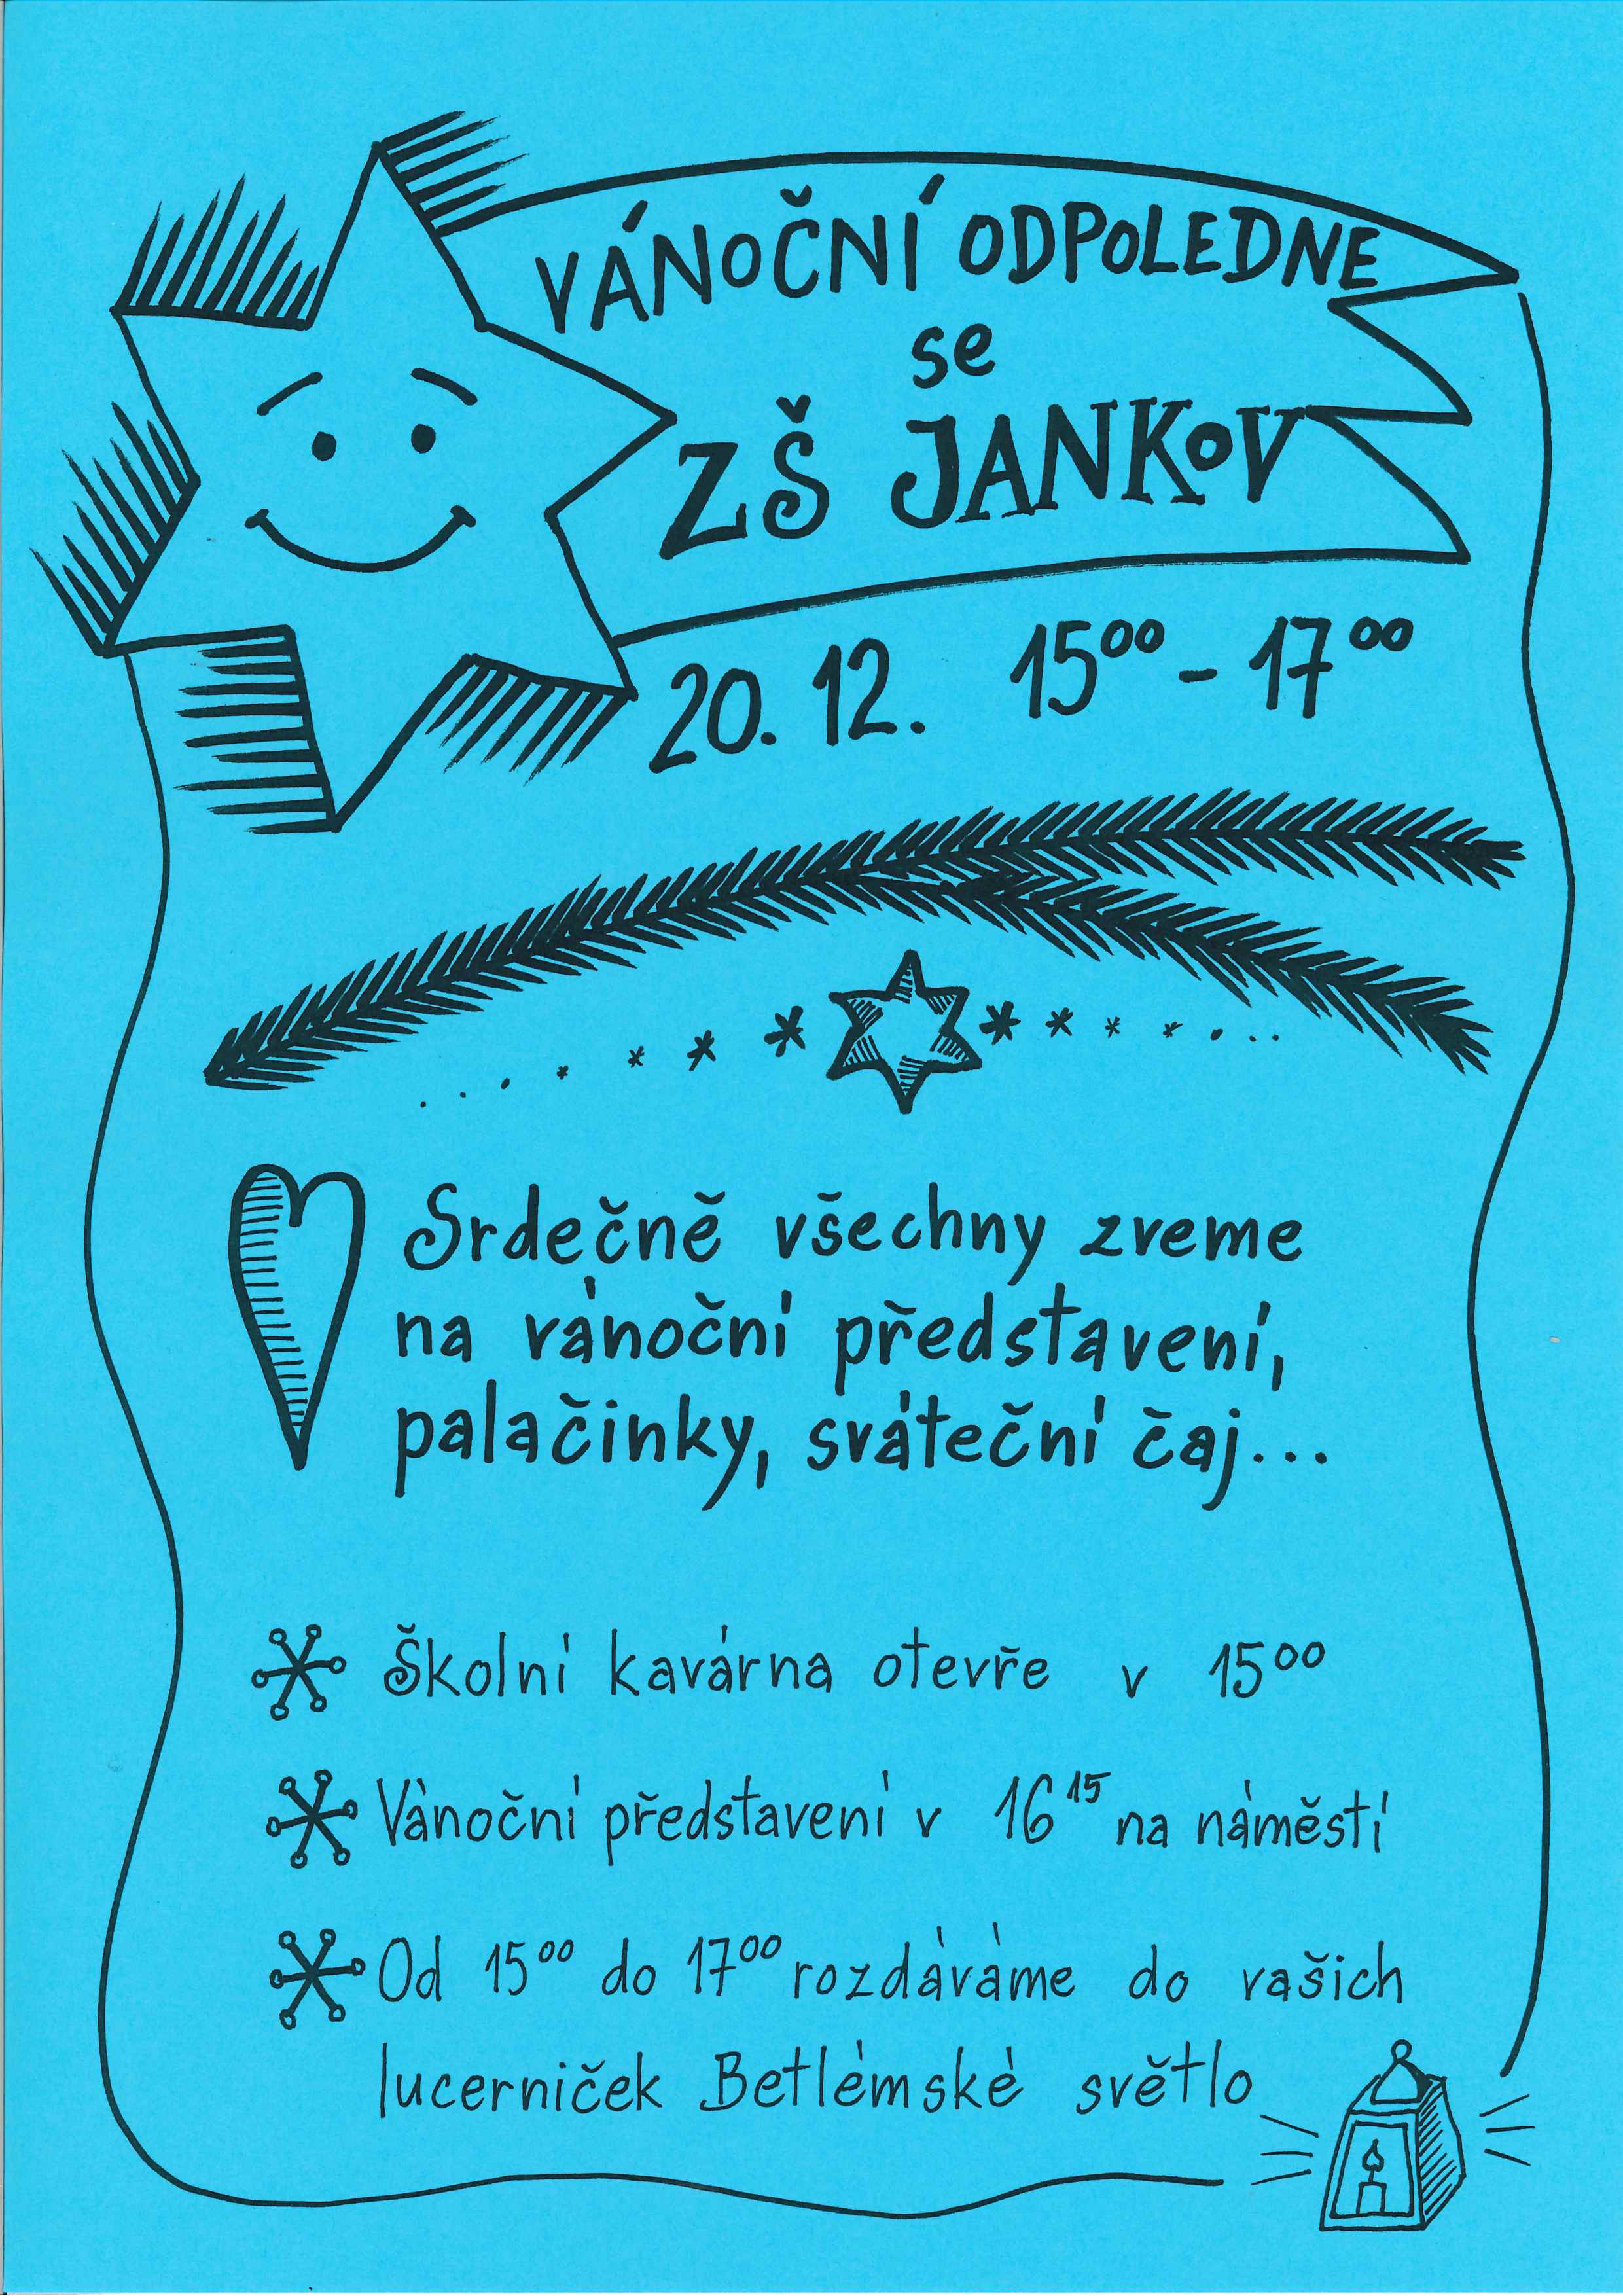 VÁNOČNÍ ODPOLEDNE
se
ZŠ JANKOV
20. 12. 15⁰⁰ - 17⁰⁰
Srdečně všechny zveme
na vánoční představení,
palačinky, sváteční čaj...
Školní kavárna otevře v 15⁰⁰
Vánoční představení v 16¹⁵ na náměstí
Od 15⁰⁰ do 17⁰⁰ rozdáváme do vašich
lucerniček Betlémské světlo